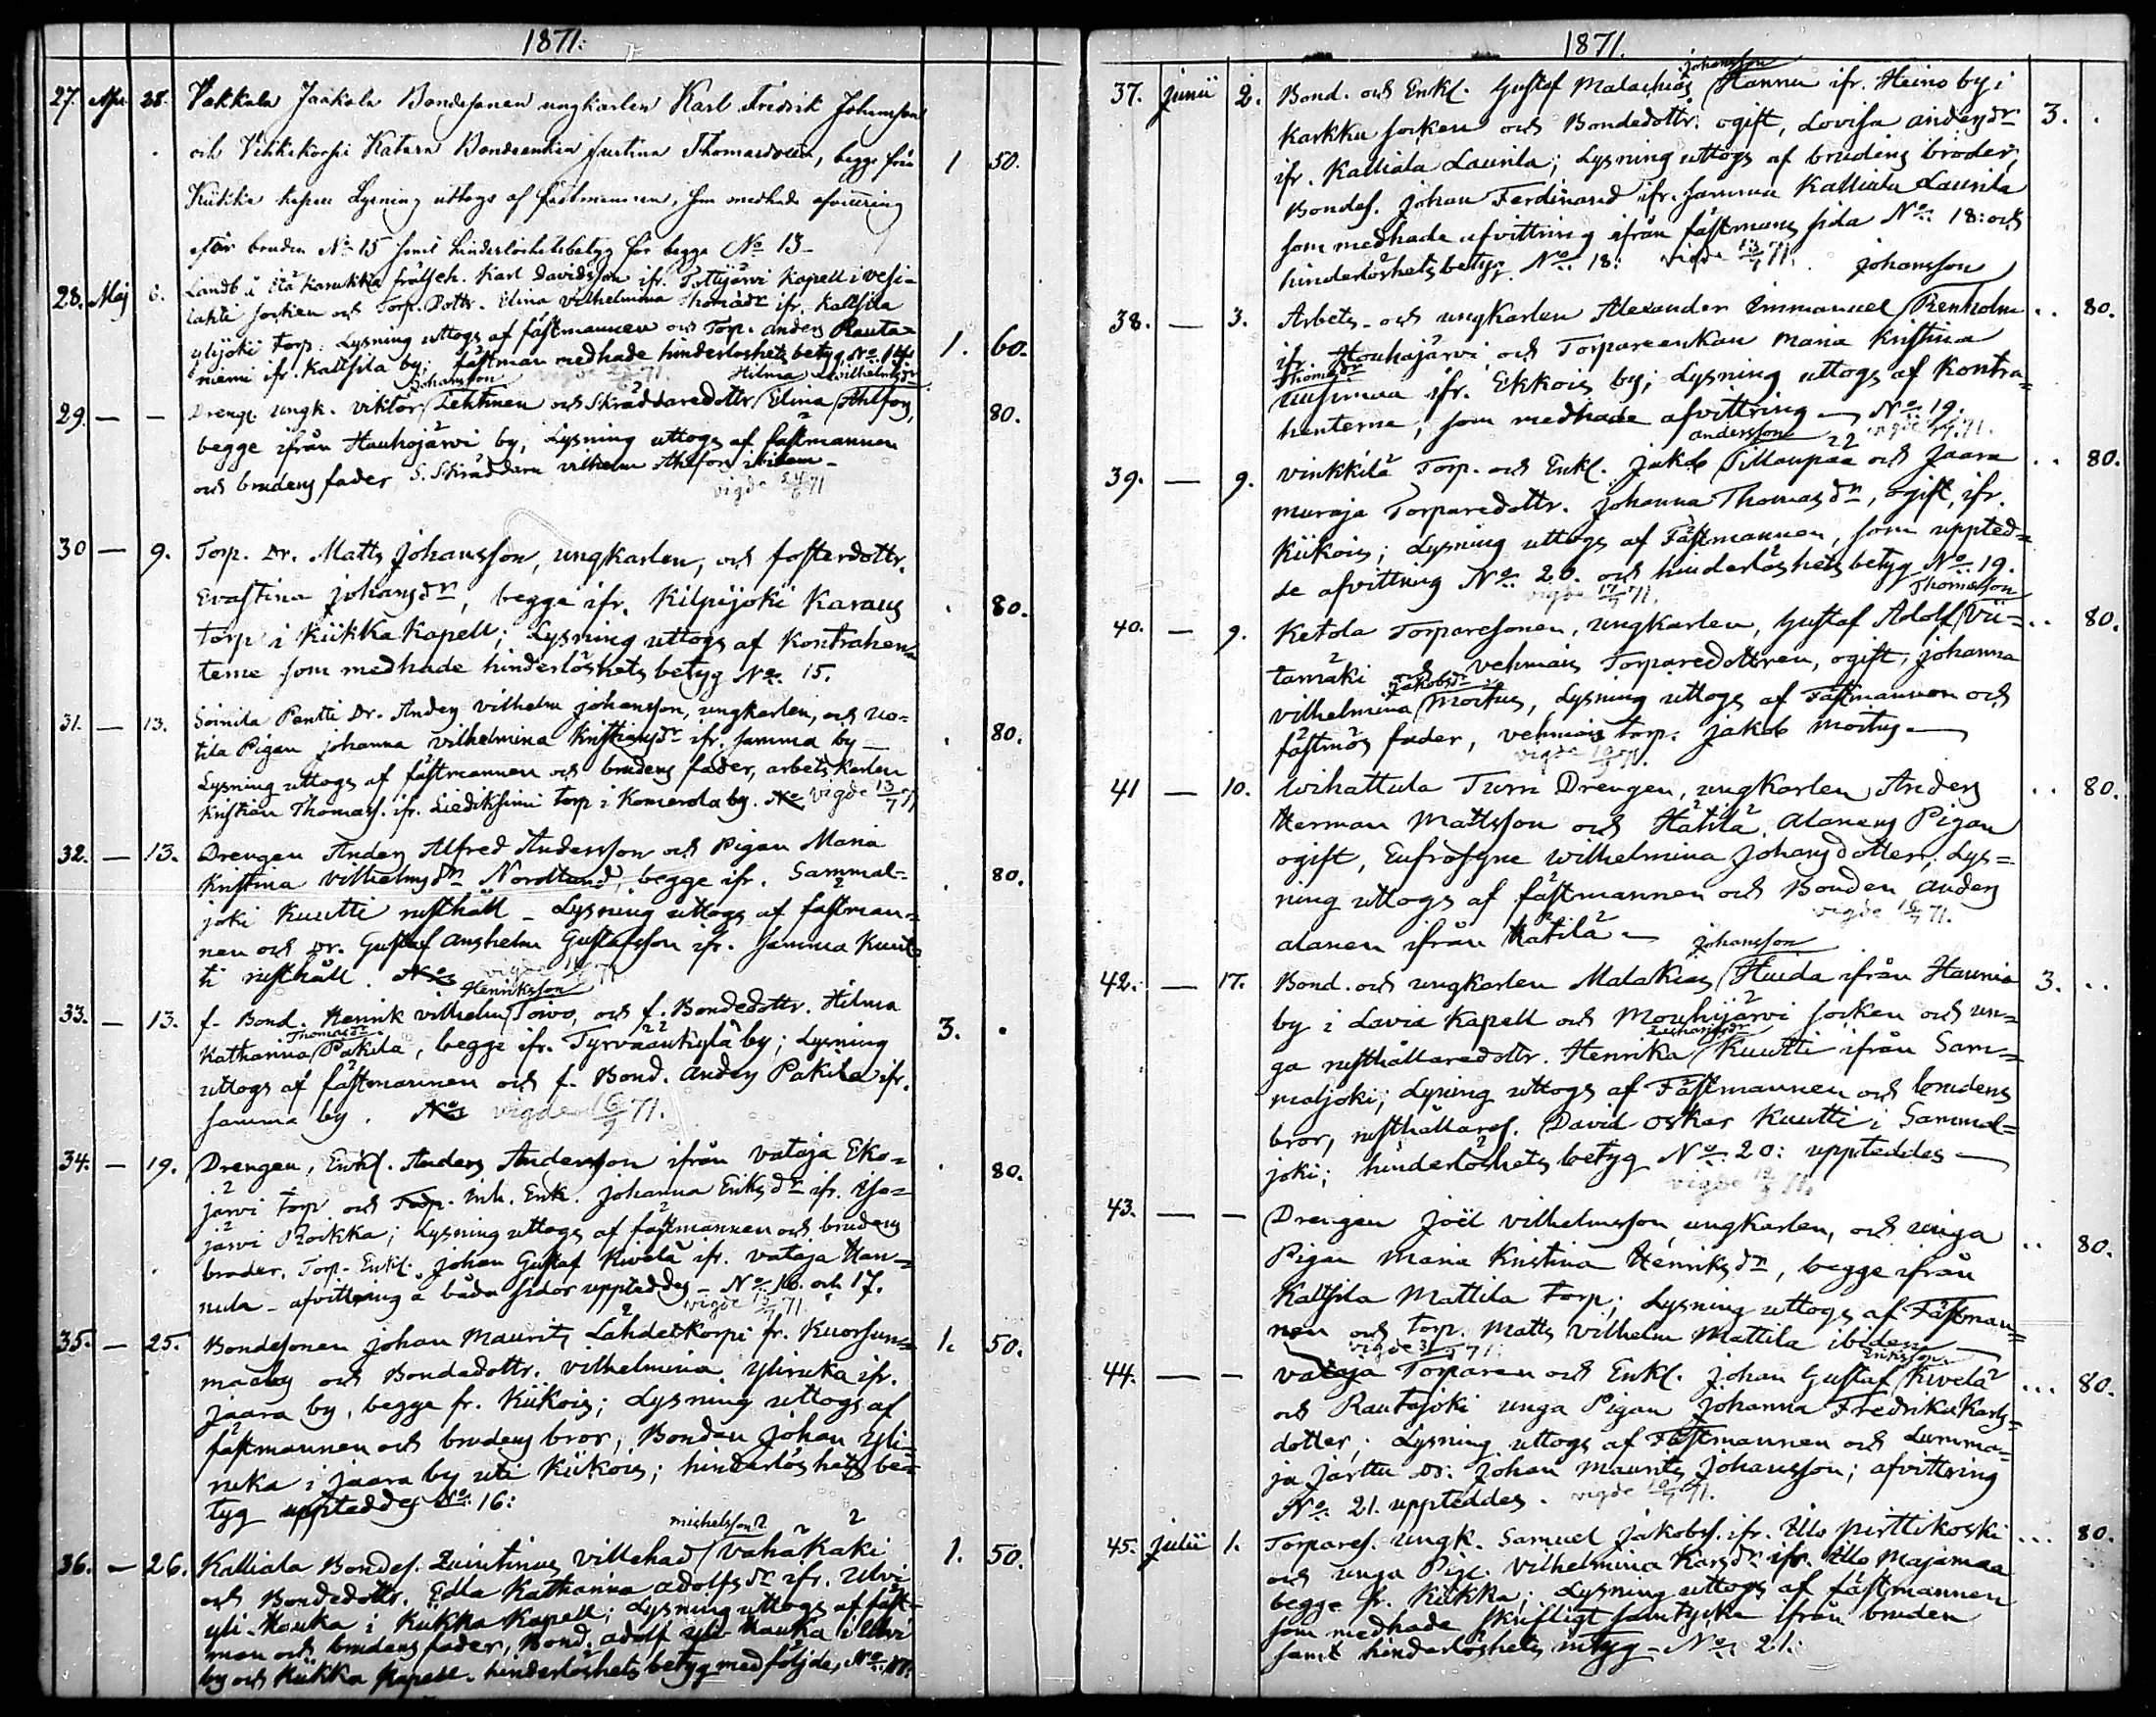 1871.
27. Apr. 28. Vakkala Jaakola Bondesonen ungkarlen Karl Fredrik Johansson
och Vihkikorpi Katara Bondeenkan Justina Thomasdotter, begge från 1 50.
Kiikka kapell Lysning uttogs af fästmannen, som medhade afvittring
efter bruden No 15 samt hinderlöshetsbetyg för begge No 13 -
28. Maj 6. Landb. i Elä Karukka frälseh. Karl Davidsson ifr. Tottijärvi Kapell i Vesi=
lahti socken och Torp. Dottr. Elina Vilhelmina Thomasdr ifr. Kaltsila
ylijöki torp. Lysning uttogs af fästmannen och Torp. Anders Rauta= 1. 60.
niemi ifr. Kaltsila by; fästman medhade hinderlöshets betyg No 14.
Johansson Hilma Wilhelmsdr
29. — — Dreng. ungk. Viktor Lehtinen och Skräddaredottr Elina Ahlfors, 80.
begge ifrån Houhajärvi by, Lysning uttogs af fästmannen
och brudens fader S. Skräddarn Vilhelm Ahlfors ibidem -
vigde 71
30 — 9. Torp. Dr. Matts Johansson, ungkarlen, och fosterdottr.
Evastina Johansdr, begge ifr. Kilpijoki Karaus 80.
torp i Kiikka Kapell; Lysning uttogs af Kontrahen=
terne som medhade hinderlöshets betyg No. 15.
31. — 13. Soinila Pentti Dr. Anders Vilhelm Johansson, ungkarlen, och Uo=
tila Pigan Johanna Vilhelmina Kristiansdr ifr. samma by — 80.
Lysning uttogs af fästmannen och brudens fader, arbets Karlen
Kristian Thomass. ifr. Liedikkeimi torp i Komerola by. No vigde 13/7 71
32. — 13. Drengen Anders Alfred Andersson och Pigan Maria
Kristina Vilhelmsdr Nordlund, begge ifr. Sammal= 80.
joki Kuutti rusthåll - Lysning uttogs af fästman=
nen och Dr. Gustaf Anshelm Gustafsson ifr. samma Kuut=
ti rusthåll. No vigde 71
Henriksson
33. — 13. f. Bond. Henrik Vilhelm Toivo, och f. Bondedottr. Hilma
Thomasdr
Katharina Pakila, begge ifr. Tyrväänkylä by; Lysning 3.
uttogs af fästmannen och f. Bond. Anders Pakila ifr.
samma by. No vigde 6/7 71.
34. — 19. Drengen, Enkl. Anders Andersson ifrån Vataja Eko=
järvi torp och Torp. Inh. Enk. Johanna Eriksdr ifr. Iso= 80.
järvi Roikka; Lysning uttogs af fästmannen och brudens
broder, Torp. Enkl. Johan Gustaf Kivelä ifr. Vataja Han=
nula - afvittring å båda sidor uppteddes - No 16. och 17.
vigde 71
35. — 25. Bondesonen Johan Maurits Lähdekorpi fr. Kuorsun= 1. 50.
maaby och Bondedottr. Vilhelmina Yliruka ifr.
Jaara by, begge fr. Kiikois; Lysning uttogs af
fästmannen och brudens bror, Bondan Johan Yli=
ruka i Jaara by uti Kiikois; hinderlöshets be=
tyg uppteddes No. 16:
michelsson
36. — 26. Kalliala Bondes. Quintinus Villehad Vähäkäki 1. 50.
och Bondedottr. Edla Katharina Adolfsdr ifr. Ulvi
yli-Hauka i Kiikka Kapell; Lysning uttogs af fäst=
man och brudens fader, Bond. Adolf Yli-Hauka i Ulvi
by och Kiikka Kapell. hinderlöshets betyg medföljde, No. 17.
1871.
Johansson
37. junii 2. Bond. och Enkl. Gustaf Malachias Hannu ifr. Heino by i
Karkku socken och Bondedottr. ogift, Lovisa Andersdr 3.
ifr. Kalliala Laurila; Lysning uttogs af brudens broder,
Bondes. Johan Ferdinand ifr. samma Kalliala Laurila
som medhade afvittring ifrån fästmans sida No. 18: och
hinderlöshets betyg No. 18: vigde 13/7 71.
Johansson
38. — 3. Arbets- och ungkarlen Alexander Immanuel Renholm 80.
ifr. Houhajärvi och Torpareenkan Maria Kristina
Thomasdr
ifr. Ekkois by; Lysning uttogs af Kontra=
henterne, som medhade afvittring — No. 19.
andersson vigde 71.
39. — 9. Vinkkilä Torp. och Enkl. Jakob Tillanpää och Jaara 80.
Muraja Torparedottr. Johanna Thomasdr, ogift, ifr.
Kiikois; Lysning uttogs af Fästmannen, som uppted=
de afvittring No. 20. och hinderlöshets betyg No. 19.
vigde 71. Thomasson
40. — 9. Ketola Torparesonen, ungkarlen, Gustaf Adolf Vii= 80.
tamäki och Vehmais Torparedottren, ogift, Johanna
Jakobsdr
Vilhelmina Moitus, Lysning uttogs af Fästmannen och
fästmös fader, Vehmais torp. Jakob Moitus —
vigde 71.
41 — 10. Wihattula Turri Drengen, ungkarlen Anders 80.
Herman Mattsson och Hätilä Alanens Pigan
ogift, Eufrosyne Wilhelmina Johansdotter; Lys=
ning uttogs af fästmannen och Bonden Anders
Alanen ifrån Hätilä — vigde 71.
Johansson
42. — 17. Bond. och ungkarlen Malakias Huida ifrån Haunia 3.
by i Lavia Kapell och Mouhijärvi socken och un=
Zachariasdr
ga rusthållaredottr. Henrika Kuutti ifrån Sam=
maljoki; Lysning uttogs af Fästmannen och brudens
bror, rusthållares. David Oskar Kuutti i Sammal=
joki; hinderlöshets betyg No. 20: uppteddes —
vigde 71.
43. — — Drengen Joël Vilhelmsson, ungkarlen, och unga
Pigan Maria Kristina Henriksdr, begge ifrån 80.
Kaltsila Mattila torp; Lysning uttogs af Fästman=
nen och torp. Matts Vilhelm Mattila ibidem —
vigde 71. Eriksson
44. — — Vataja Torparen och Enkl. Johan Gustaf Kivelä 80.
och Rautajoki unga Pigan Johanna Fredrika Karls=
dotter; Lysning uttogs af Fästmannen och Lumma=
ja Jarttu Dr. Johan Maurits Johansson; afvittring
No. 21. uppteddes. vigde 71.
45. julii 1. Torpares. ungk. Samuel Jakobss. ifr. Illo Pirttikoski 80.
och unga Pig. Vilhelmina Karsdr ifr. Illo Majamaa
begge fr. Kiikka; Lysning uttogs af fästmannen
som medhade skriftligt samtycke ifrån bruden
samt hinderlöshets intyg - No. 21.